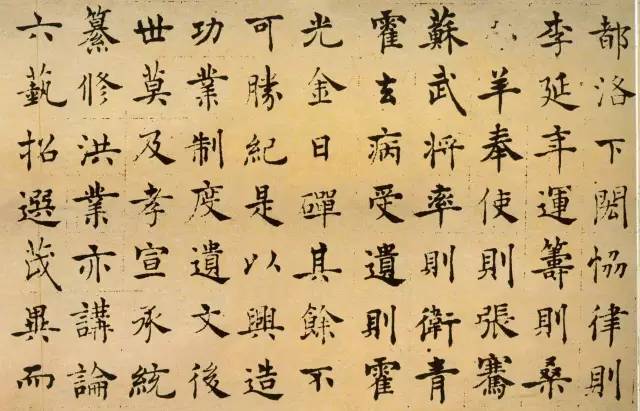 都洛下閎協律則
李延年運籌則桑
羊奉使則張騫
蘇武將率則衛青
霍去病受遺則霍
光金日磾其餘不
可勝紀是以興造
功業制度遺文後
世莫及孝宣承統
纂修洪業亦講論
六藝招選茂異而